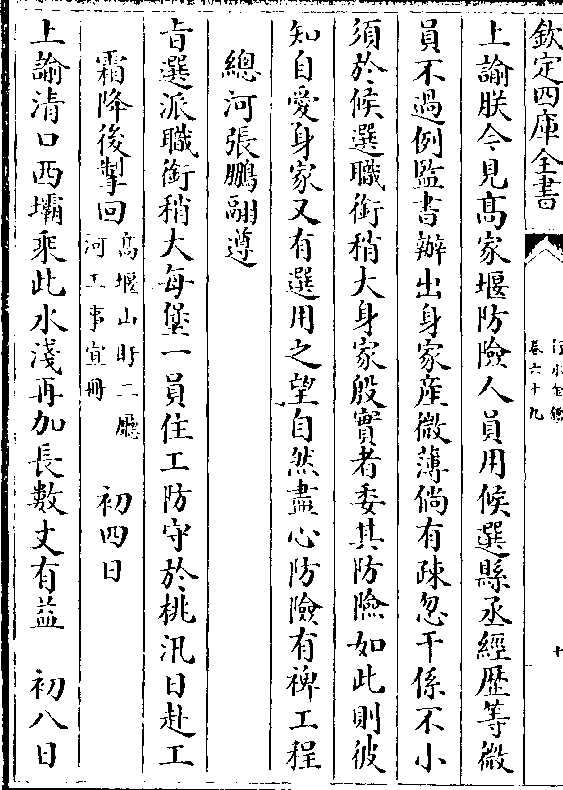 欽定四庫全書
行水金鑑
卷六十九
十
上諭朕今見高家堰防險人員用候選縣丞經歷等微
員不過例監書辦出身家產微薄倘有疎忽干係不小
須於候選職銜稍大身家殷實者委其防險如此則彼
知自愛身家又有選用之望自然盡心防險有裨工程
總河張鵬翮遵
旨選派職銜稍大每堡一員住工防守於桃汛日赴工
霜降後掣回
高堰山盱二廳
河工事宜冊
初四日
上諭清口西壩乘此水淺再加長數丈有益 初八日